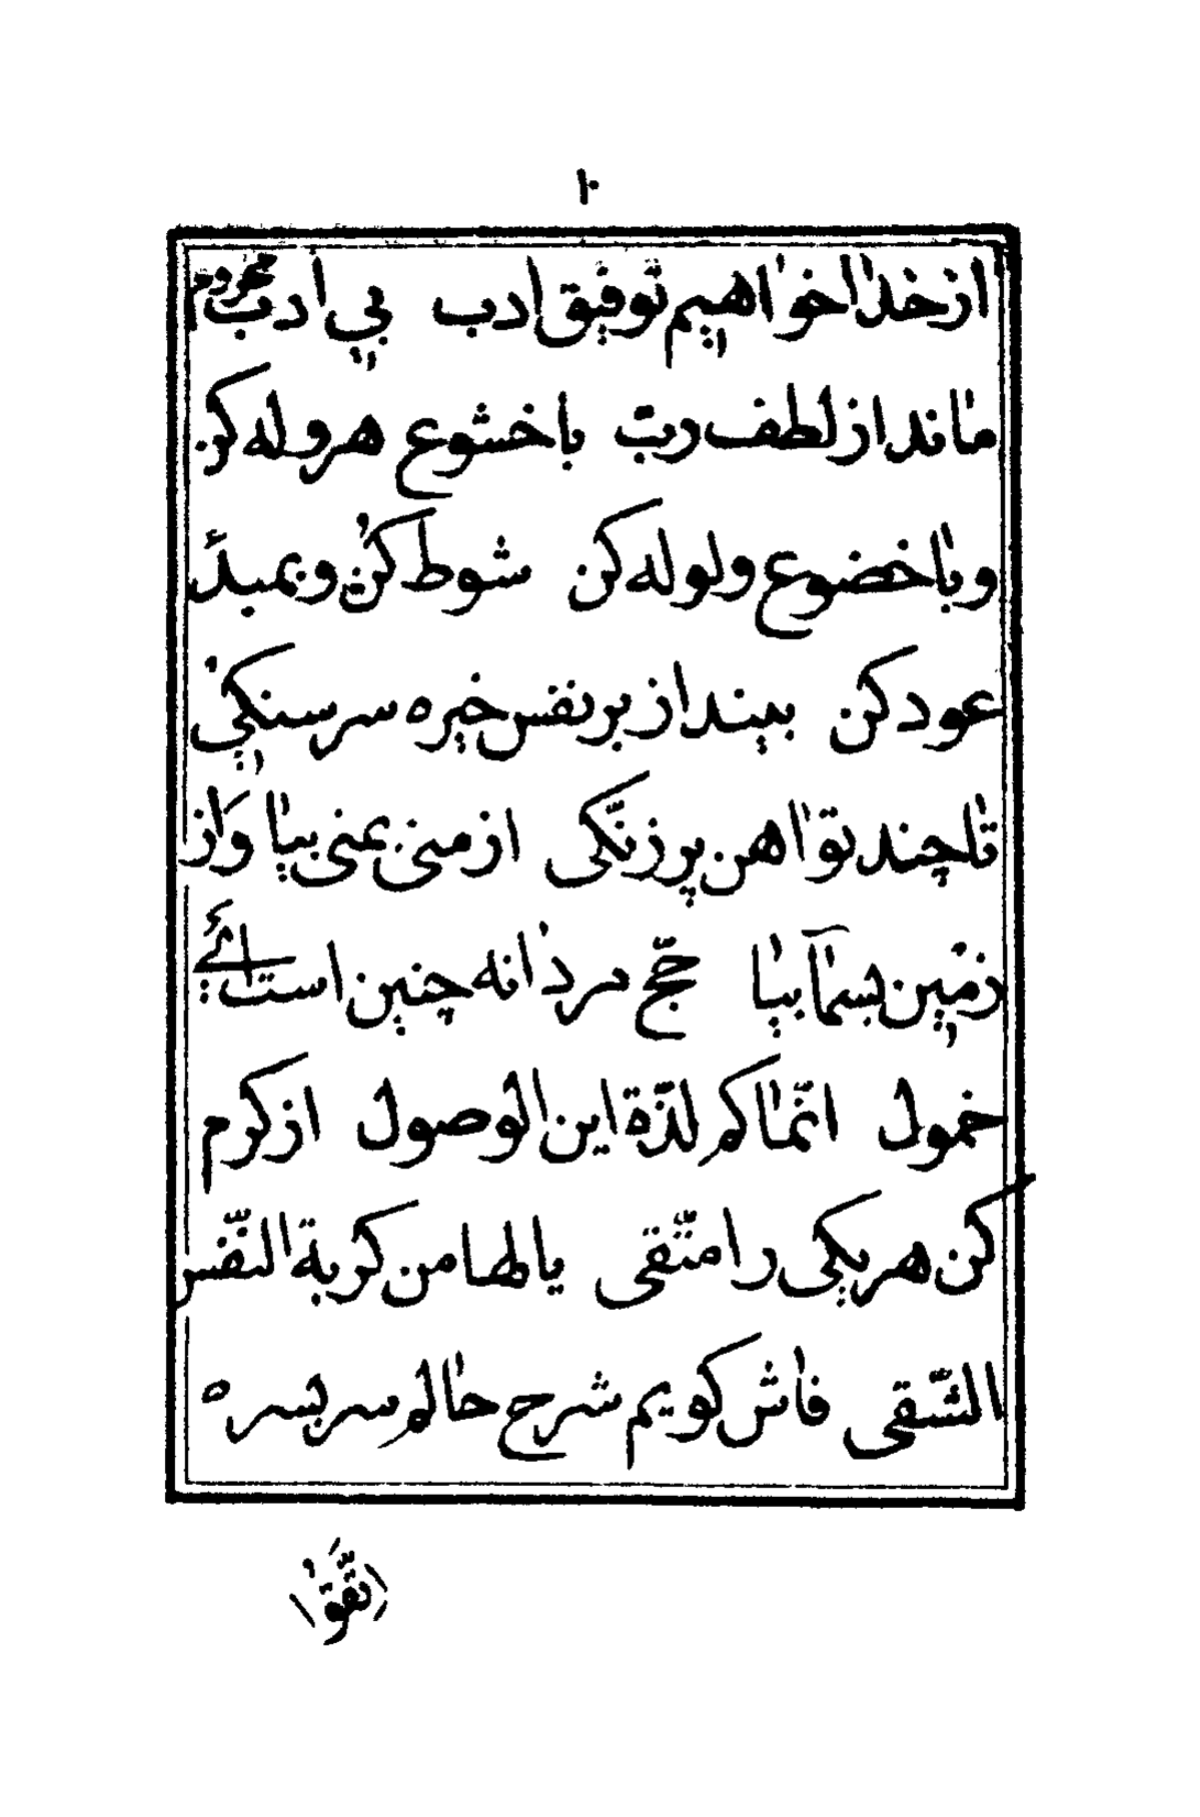 ۱۰
از خدا خواهیم توفیق ادب بی ادب محروم
ماند از لطف ربّ با خشوع هروله کن
و با خضوع ولوله کن شوط کن و بمبدأ
عود کن بینداز بر نفس خیره سر سنکی
تا چند تو اهن پر زنّکی از منی بمنی بیا و از
زمین بسمآ بیا حجّ مردانه چنین است ائے
خمول انّما کم لذّة این الوصول از کرم
کن هر یکی را متّقی یا لها من کربة النّفس
الشّقی فاش کویم شرح حالم سر بسره
اتّقوا